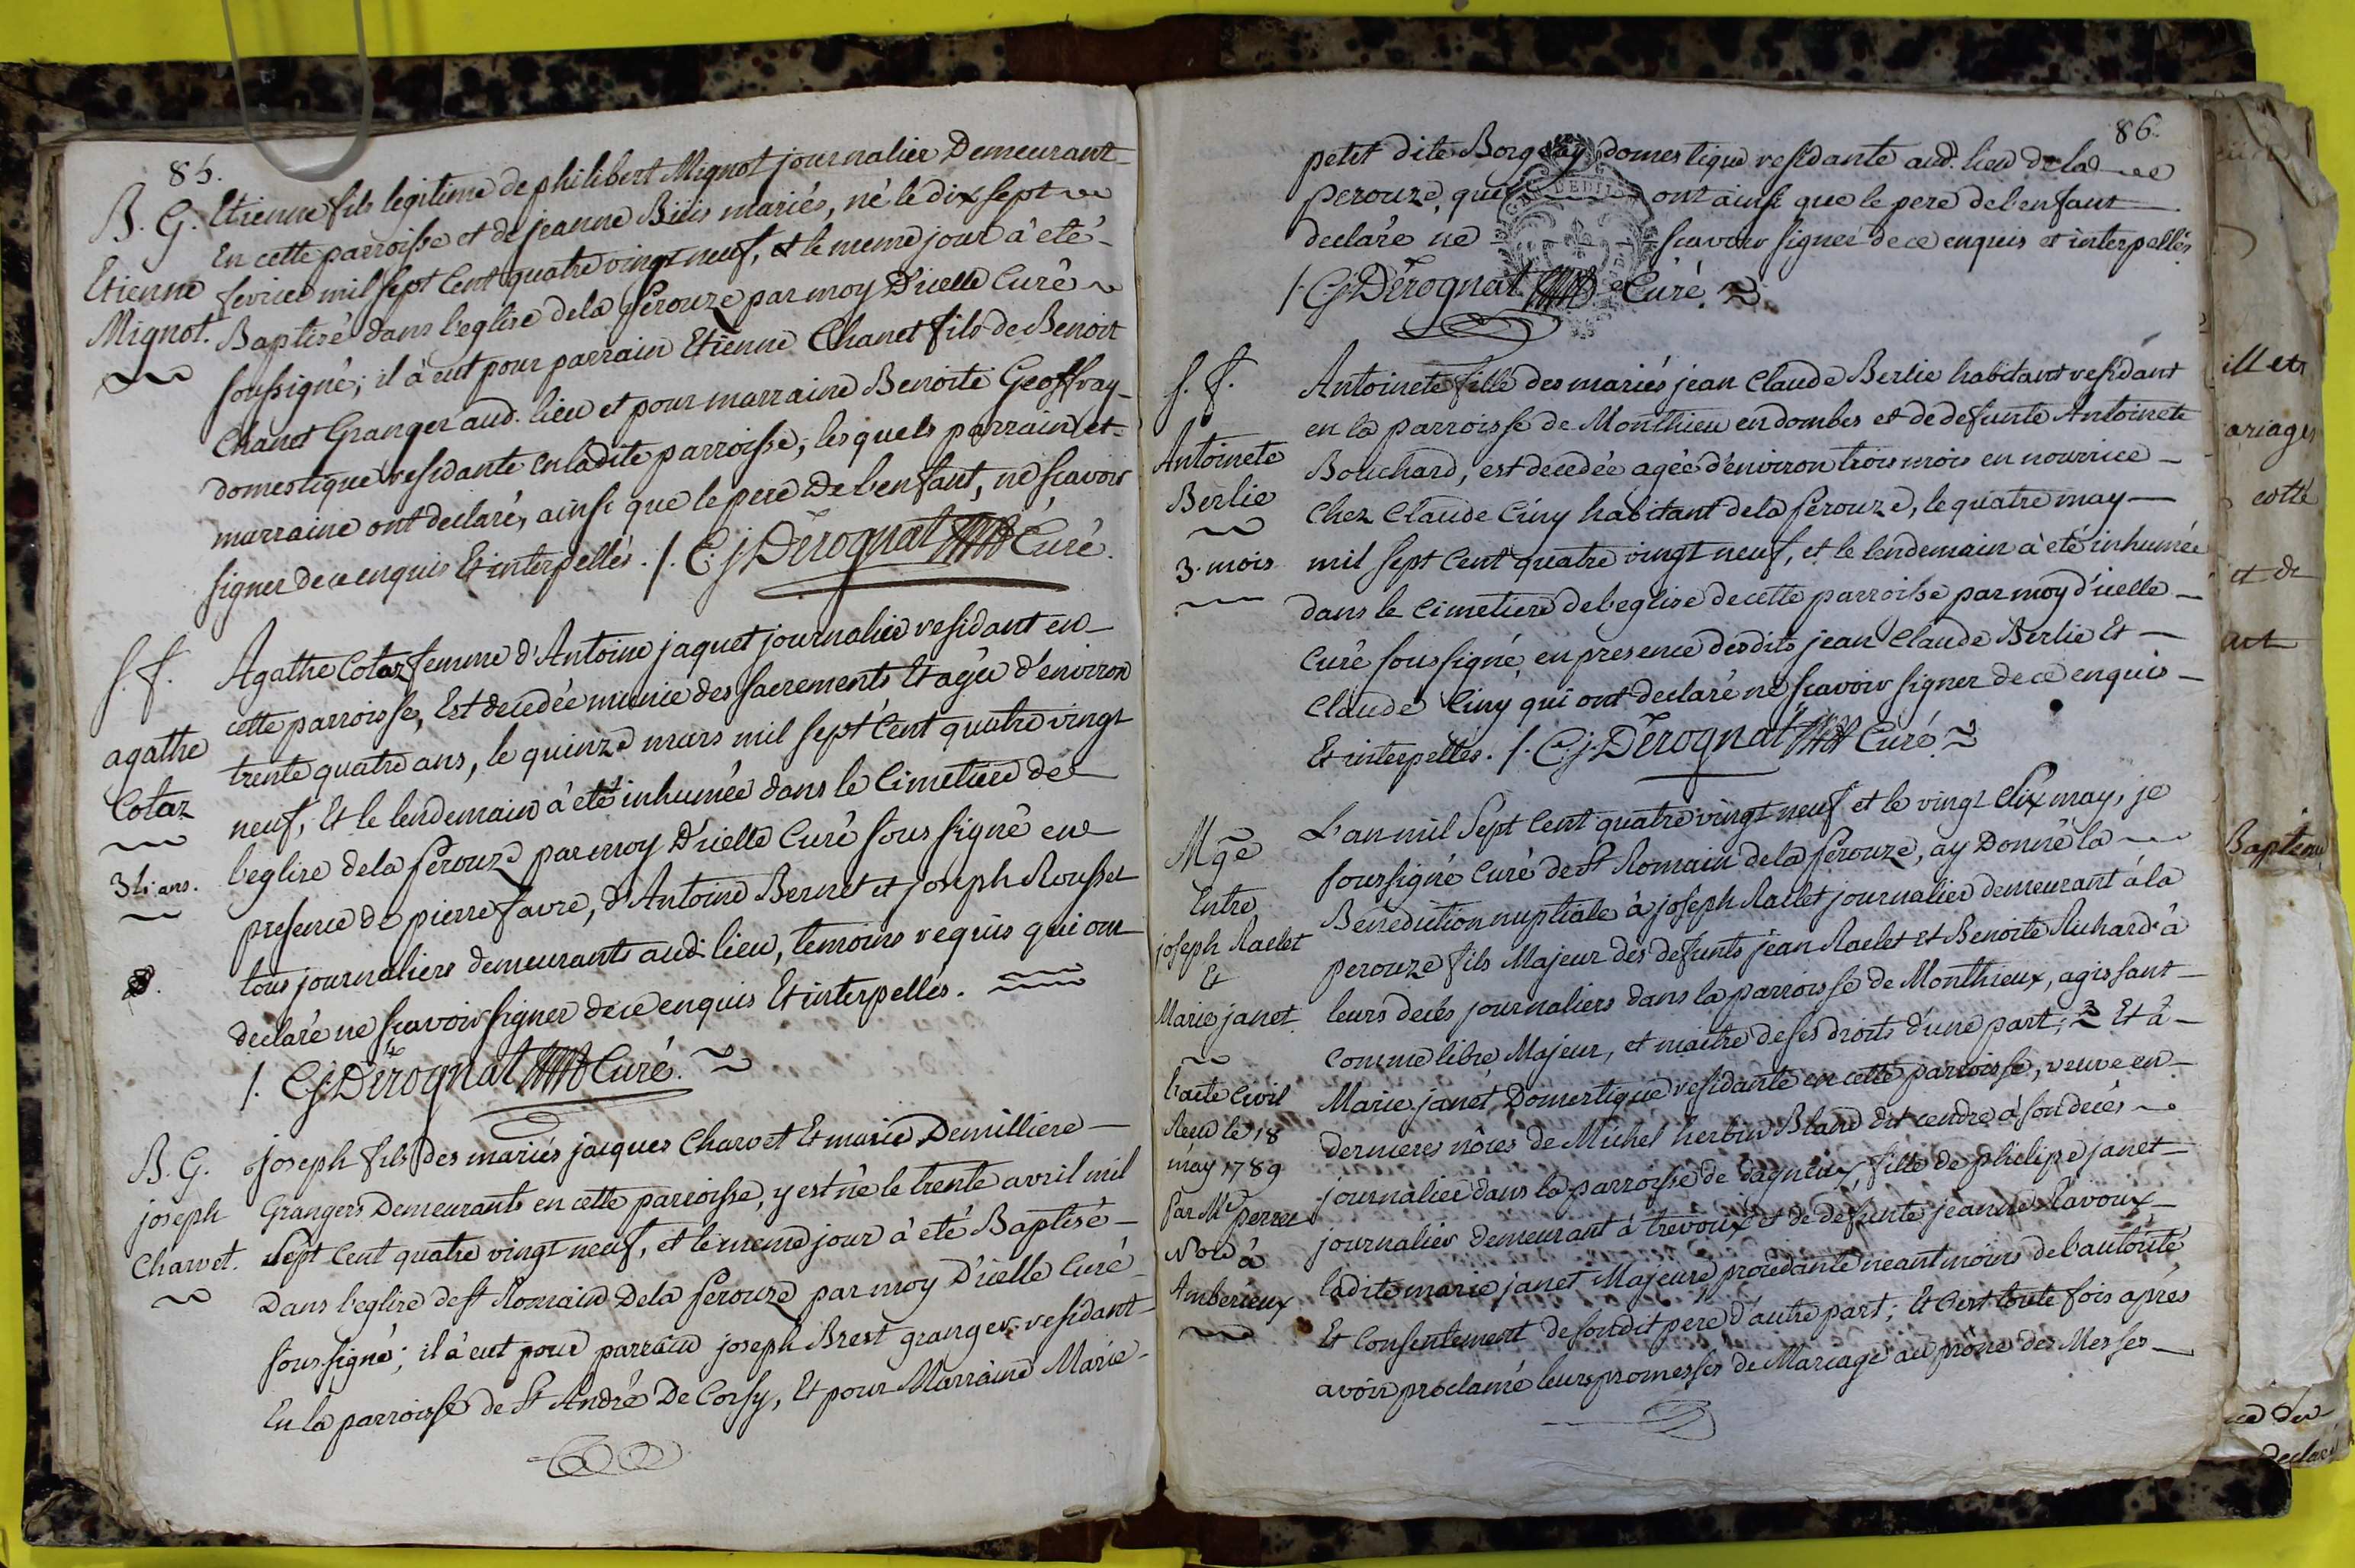 85.
B. G.
Etienne
Mignot.
Etienne fils legitime de philibert Mignot journalier Demeurant
En cette parroisse et de jeanne Biiis mariés, né le dix sept
fevrier mil sept Cent quatre vingt neuf, et le meme jour à eté
Baptisé dans l'eglise dela Perouze par moy D'icelle Curé
soussigné; il à eut pour parrain Etienne Chanet fils de Benoit
Chanet Granger aud. lieu et pour marraine Benoite Geoffray
domestique residante en ladite parroisse, lesquels parrain et
marraine ont declaré, ainsi que le pere de l'enfant, ne scavoir
signer de ce enquis Et interpellés. /. C. j. Dérognat Curé.
S. f.
agathe
Cotaz
34. ans.
Agathe Cotaz femme d'Antoine jaquet journalier residant en
cette parroisse, Est decedée munie des sacrements Et agée d'environ
trente quatre ans, le quinze mars mil sept Cent quatre vingt
neuf, Et le lendemain à eté inhumée dans le Cimetiere de
l'eglise dela Perouze par moy D'icelle Curé sous signé en
presence de pierre favre, d'Antoine Bernet et joseph Rousset
tous journaliers demeurants aud. lieu, temoins requis qui ont
declaré ne scavoir signer de ce enquis Et interpellés.
/. C. j. Dérognat Curé.
B. G.
joseph
Charvet.
joseph fils des mariés jacques Charvet Et marie Demilliere
Grangers Demeurants en cette parroisse, y est né le trente avril mil
Sept Cent quatre vingt neuf, et le meme jour à eté Baptisé
Dans l'eglise de St Romain Dela Perouze par moy D'icelle Curé
sous signé; il à eut pour parrain joseph Brest granger residant
En la parroisse de St André De Corsy, Et pour Marraine Marie
86.
petit dite Borgeay domestique residante aud. lieu dela
perouze, que ont ainsi que le pere de l'enfant
declaré ne scavoir signer de ce enquis et interpellés
/. C. j. Dérognat Curé.
S. f.
Antoinete
Berlie
3. mois
Antoinete fille des mariés jean Claude Berlie habitant residant
en la parroisse de Monthieu en dombes et de defunte Antoinete
Bouchard, est decedée agée d'environ trois mois en nourrice
chez Claude Ciny habitant dela Perouze, le quatre may
mil sept Cent quatre vingt neuf, et le lendemain à eté inhumée
dans le Cimetiere de l'eglise de cette parroisse par moy d'icelle
Curé sous signé, en presence desdits jean Claude Berlie Et
Claude Ciny qui ont declaré ne scavoir signer de ce enquis
Et interpellés. /. C. j. Dérognat Curé
Mge
Entre
joseph Raclet
Et
Marie janet
l'acte Civil
Recu le 18
may 1789
Par Me perret
Nore à
Amberieux
L'an mil Sept Cent quatre vingt neuf et le vingt Six may, je
soussigné Curé de St Romain dela Perouze, ay Donné la
Benediction nuptiale à joseph Raclet journalier demeurant à la
perouze fils Majeur des defunts jean Raclet Et Benoite Richard à
leurs decés journaliers dans la parroisse de Monthieux, agissant
comme libre Majeur, et maitre de ses droits d'une part; Et à
Marie janet Domestique residante en cette parroisse, veuve en
dernieres nôces de Michel herbin Bland dit cendre à son decés
journalier dans la parroisse de dagneux, fille de philipe janet
journalier demeurant à trevoux et de defunte jeanne Lavoux
ladite marie janet Majeure procedante neantmoins de l'autorité
Et Consentement de son dit pere d'autre part; Et c'est toute fois après
avoir proclamé leurs promesses de Mariage au prône des Messes
ill et
ariages
cotté
et de
Baptem
declaré